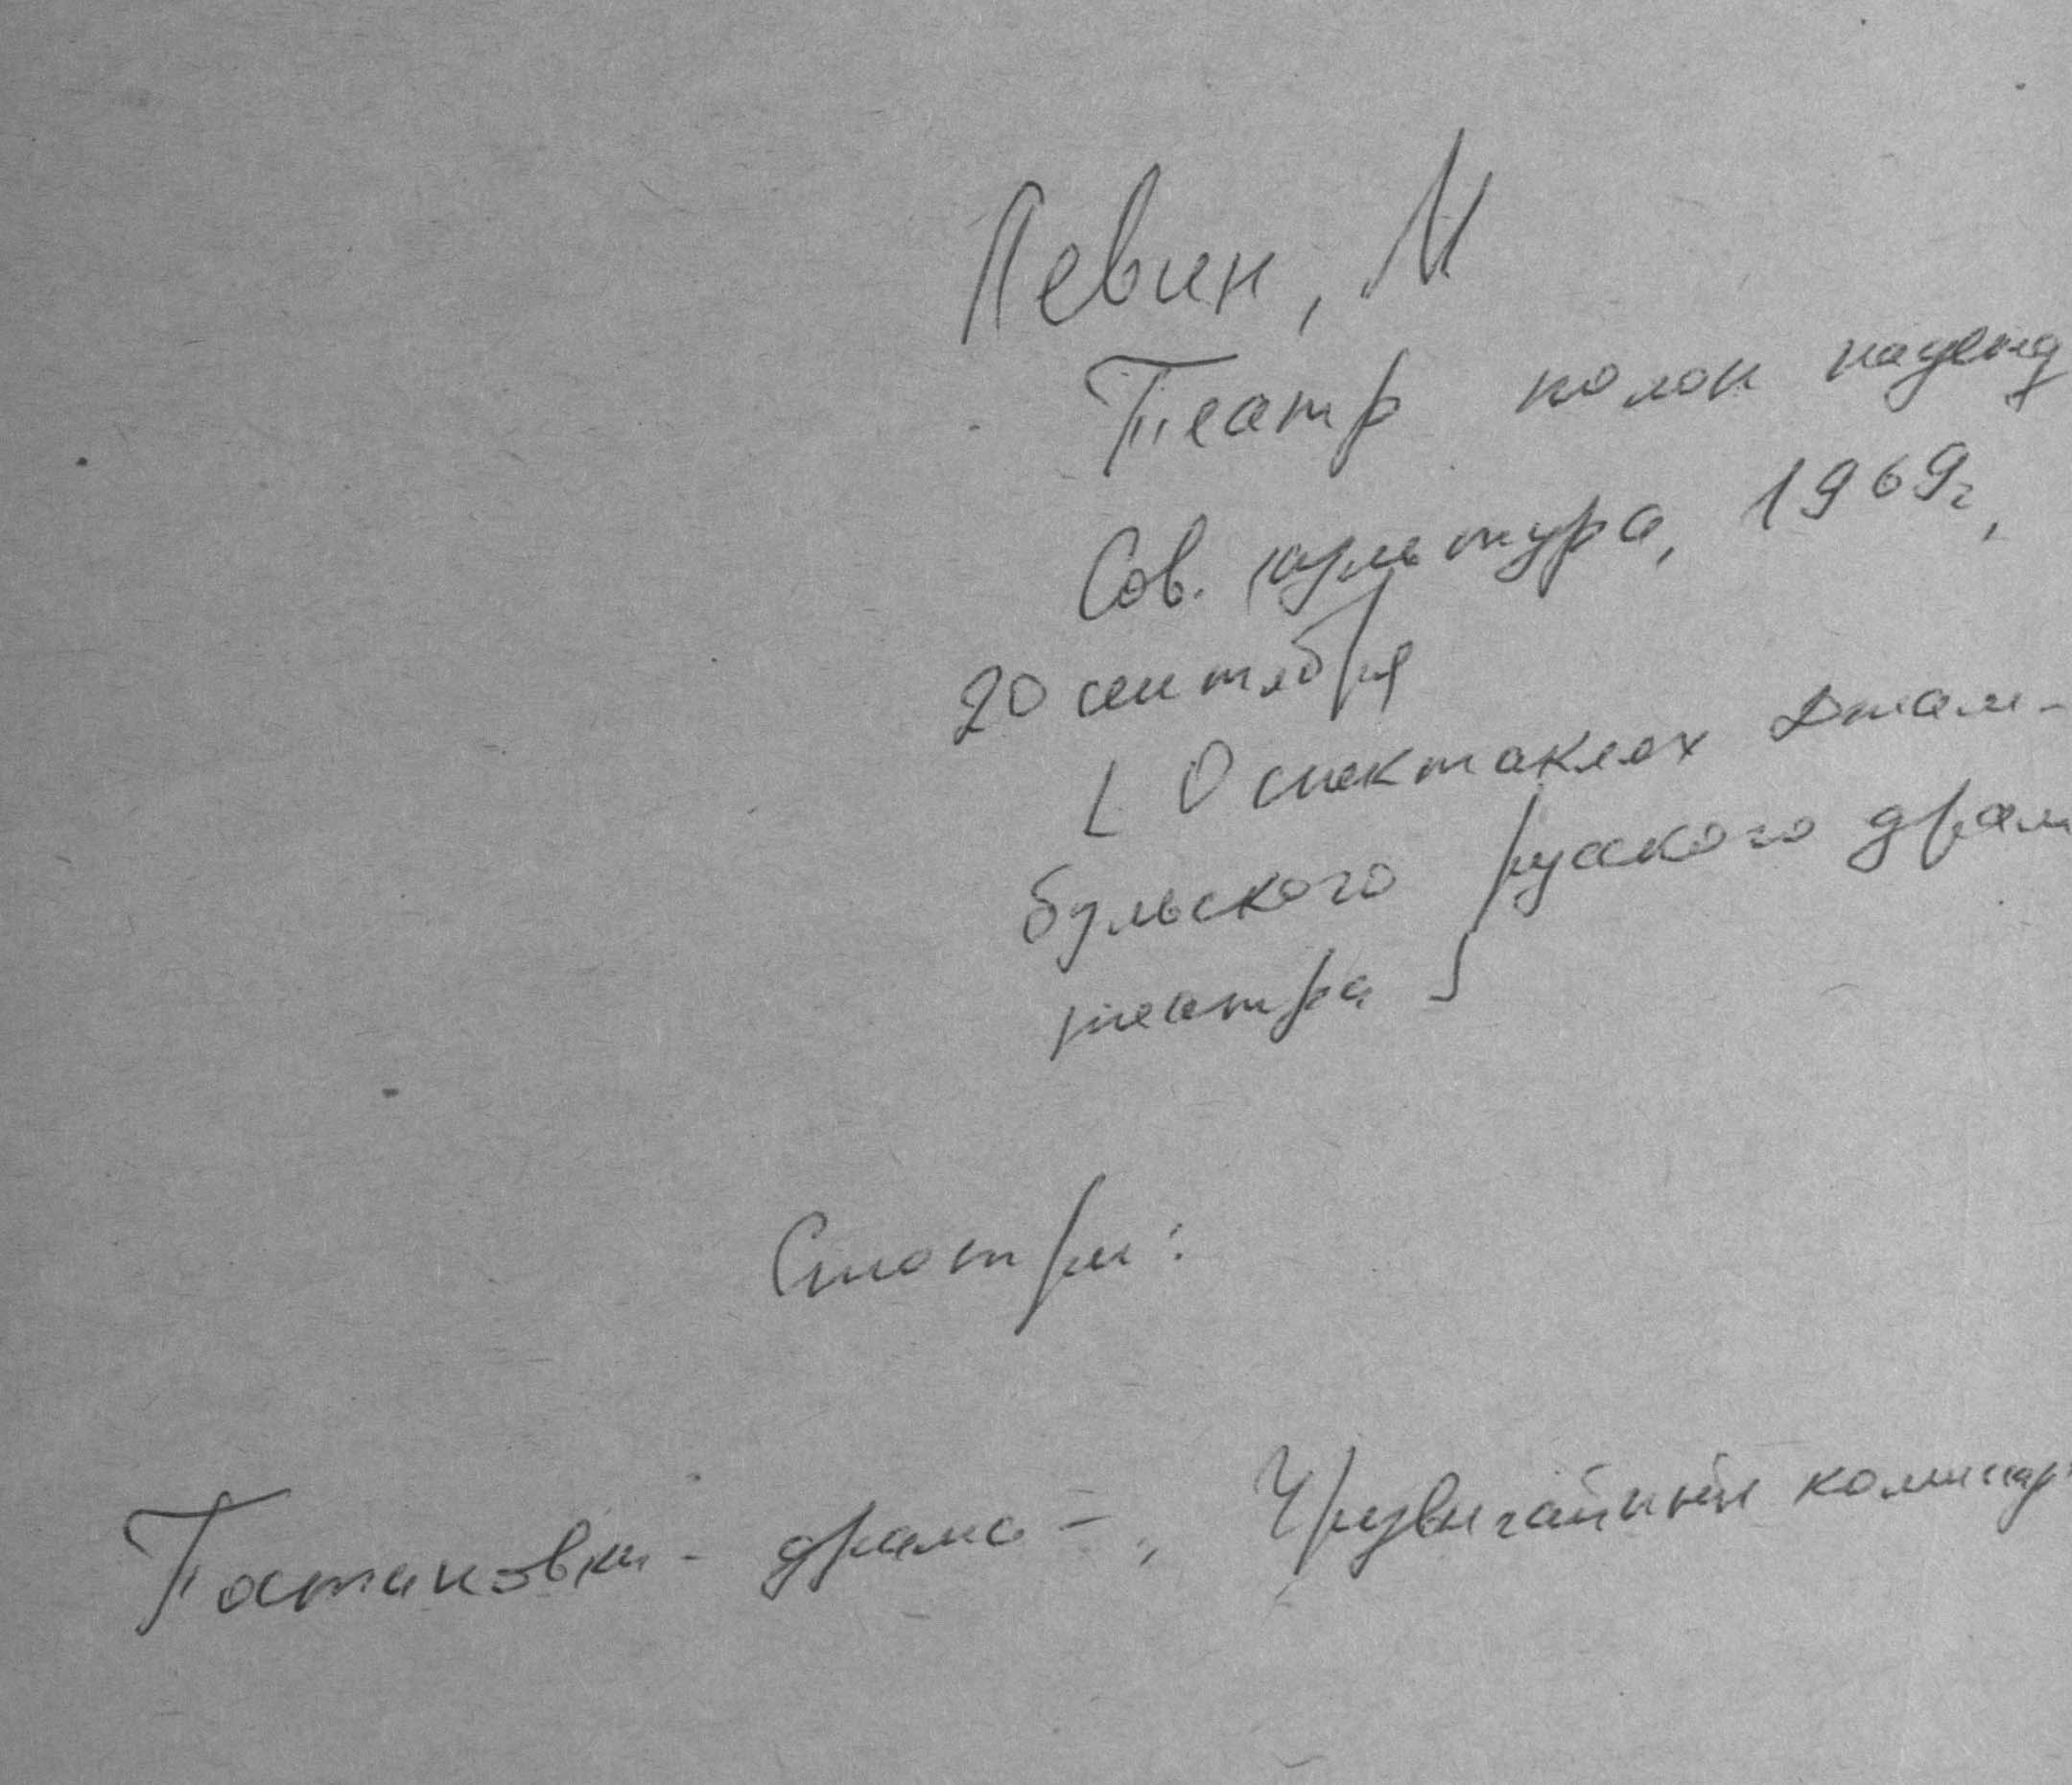 Левин, М
Театр полон надежд
Сов. культура, 1969г,
20 сентября
[ О спектаклях Джам-
бульского русского драм
театра ]
Смотри:
Постановки - драма - , Чрезвычайный комиссар